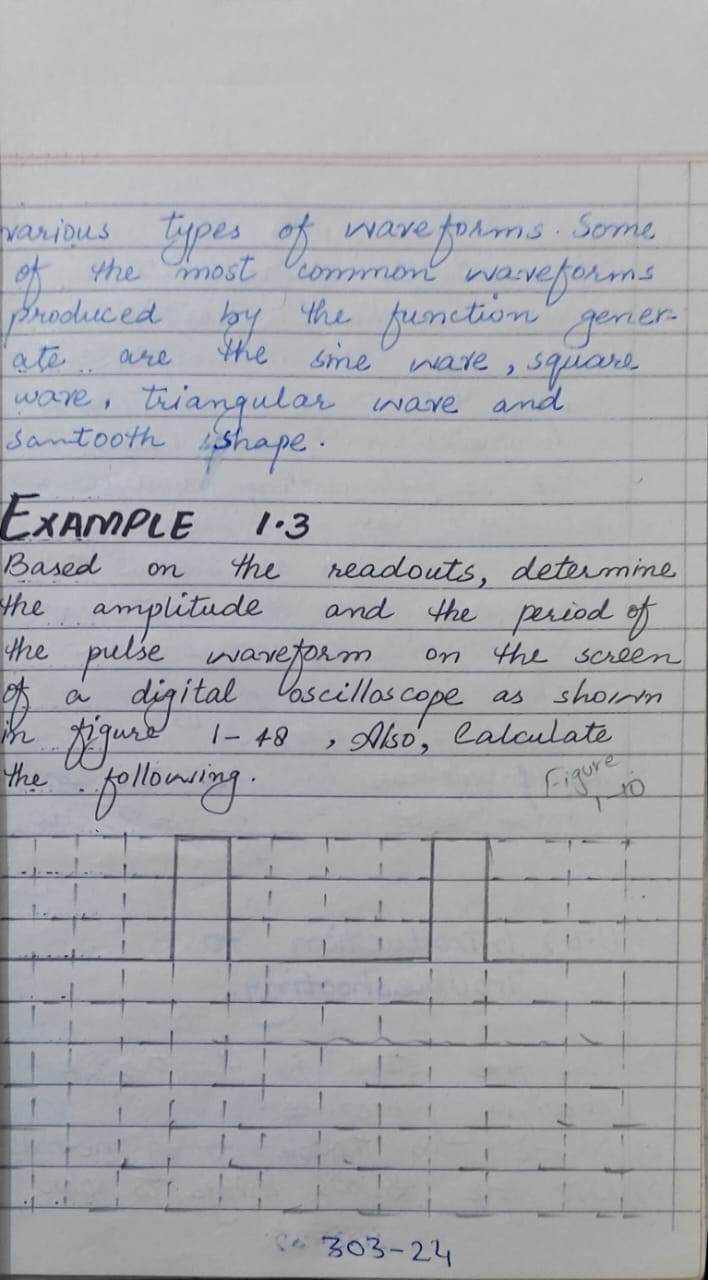 various types of waveforms. Some
of the most common waveforms
produced by the function gener-
ate are the sine wave, square
wave, triangular wave and
sawtooth shape.
EXAMPLE 1.3
Based on the readouts, determine
the amplitude and the period of
the pulse waveform on the screen
of a digital oscilloscope as shown
in figure 1-48, Also, Calculate
the following.
Figure
1-10
303-24